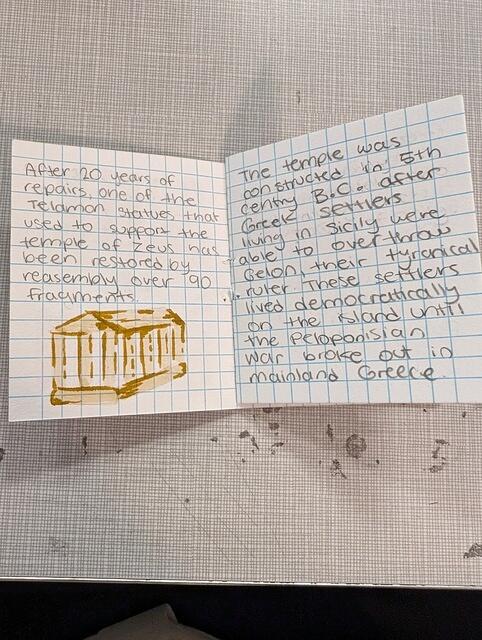 After 20 years of
repairs, one of the
Telamon statues that
used to support the
temple of Zeus has
been restored by
reasembly over 90
fragments.
The temple was
constructed in 5th
centry B.C. after
Greek settlers
living in Sicily were
able to overthrow
Gelon, their tyranical
ruler. These settlers
lived democratically
on the island until
the Peloponisian
War broke out in
mainland Greece.